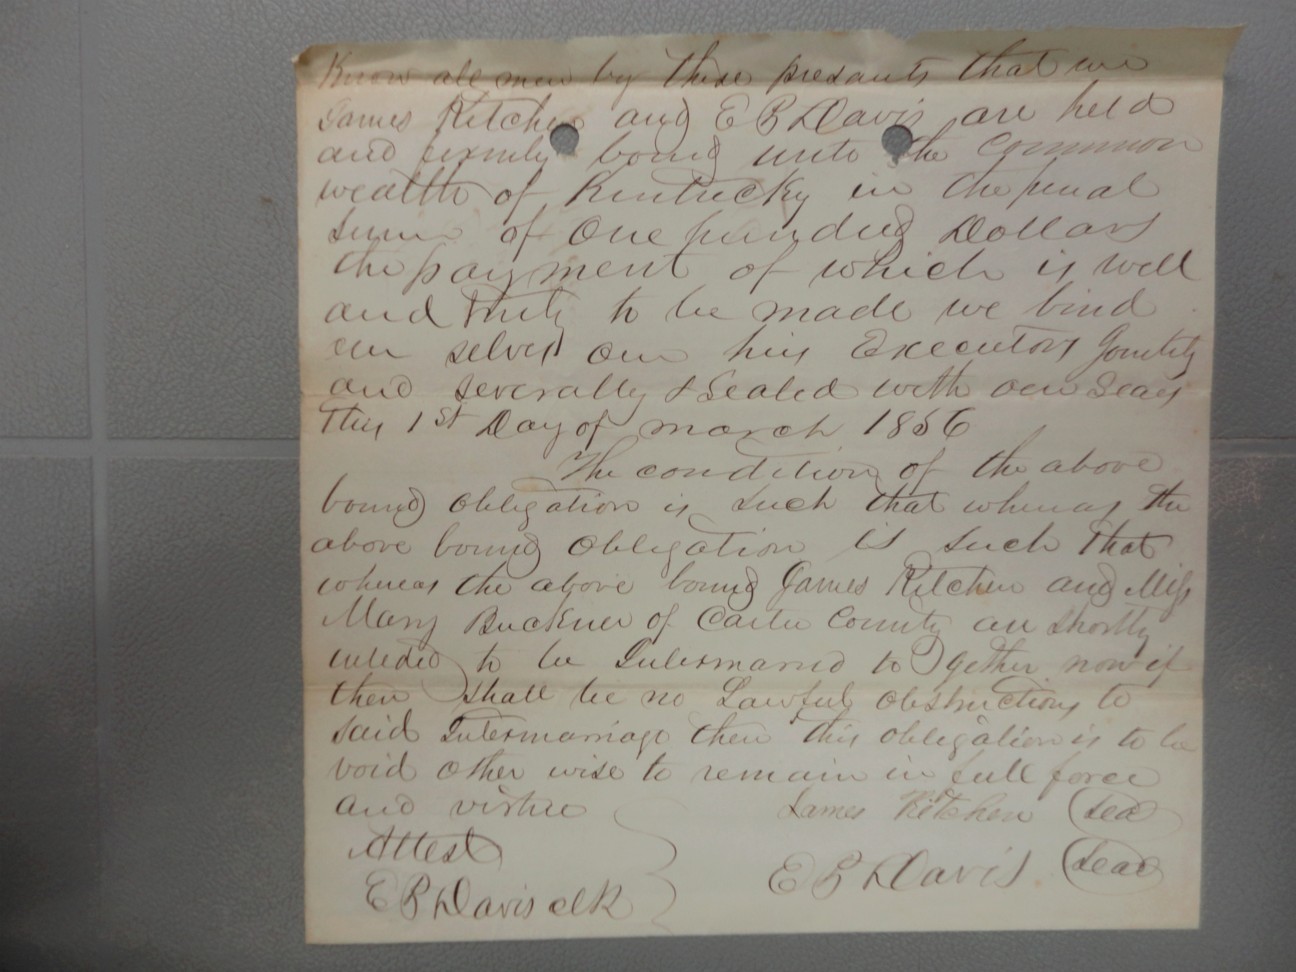 Know all men by these presants that we
James Kitchen and E B Davis are held
and firmly bound unto the Common
wealth of Kentucky in the penal
sum of One hundred Dollars
the payment of which is well
and truly to be made we bind
our selves our hirs Executors Jointly
and severally & Sealed with our Seals
This 1st Day of march 1856
The condition of the above
bound obligation is such that whereas the
above bound obligation is such that
whereas the above bound James Kitchen and Miss
Mary Buckner of Carter County are shortly
inteded to be Intermarried to gether now if
ther shall be no Lawful obstructions to
said Intermarriage then this obligation is to be
void other wise to remain in full force
and virtue James Kitchen (Seal)
Attest
E B Davis (Seal)
E B Davis clk